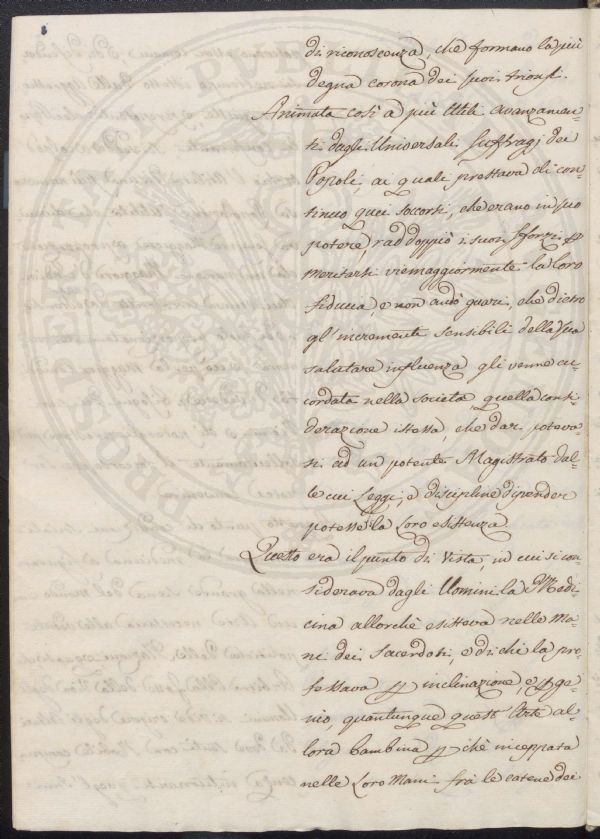 di riconoscenza, che formano la più
degna corona dei suoi trionfi.
Animata così a più Utili avanzamen-
ti dagli Universali Suffragj dei
Popoli, ai quali prestava di con-
tinuo quei soccorsi, che erano in suo
potere, raddoppiò i suoi sforzi p
meritarsi viemaggiormente la loro
fiducia, e non andò guari, che dietro
gl'incrementi sensibili della sua
salutare influenza gli venne ac-
cordata nella Società quella consi-
derazione istessa, che dar poteva-
si ad un potente Magistrato dal-
le cui Leggi, e discipline dipender
potesse la Loro esistenza.
Questo era il punto di Vista, in cui si con-
siderava dagli Uomini la Medi-
cina allorchè esisteva nelle Ma-
ni dei Sacerdoti, e di chi la pro-
fessava p inclinazione, e p ge-
nio, quantunque quest'Arte al-
lora bambina p chè inceppata
nelle Loro Mani frà le catene dei